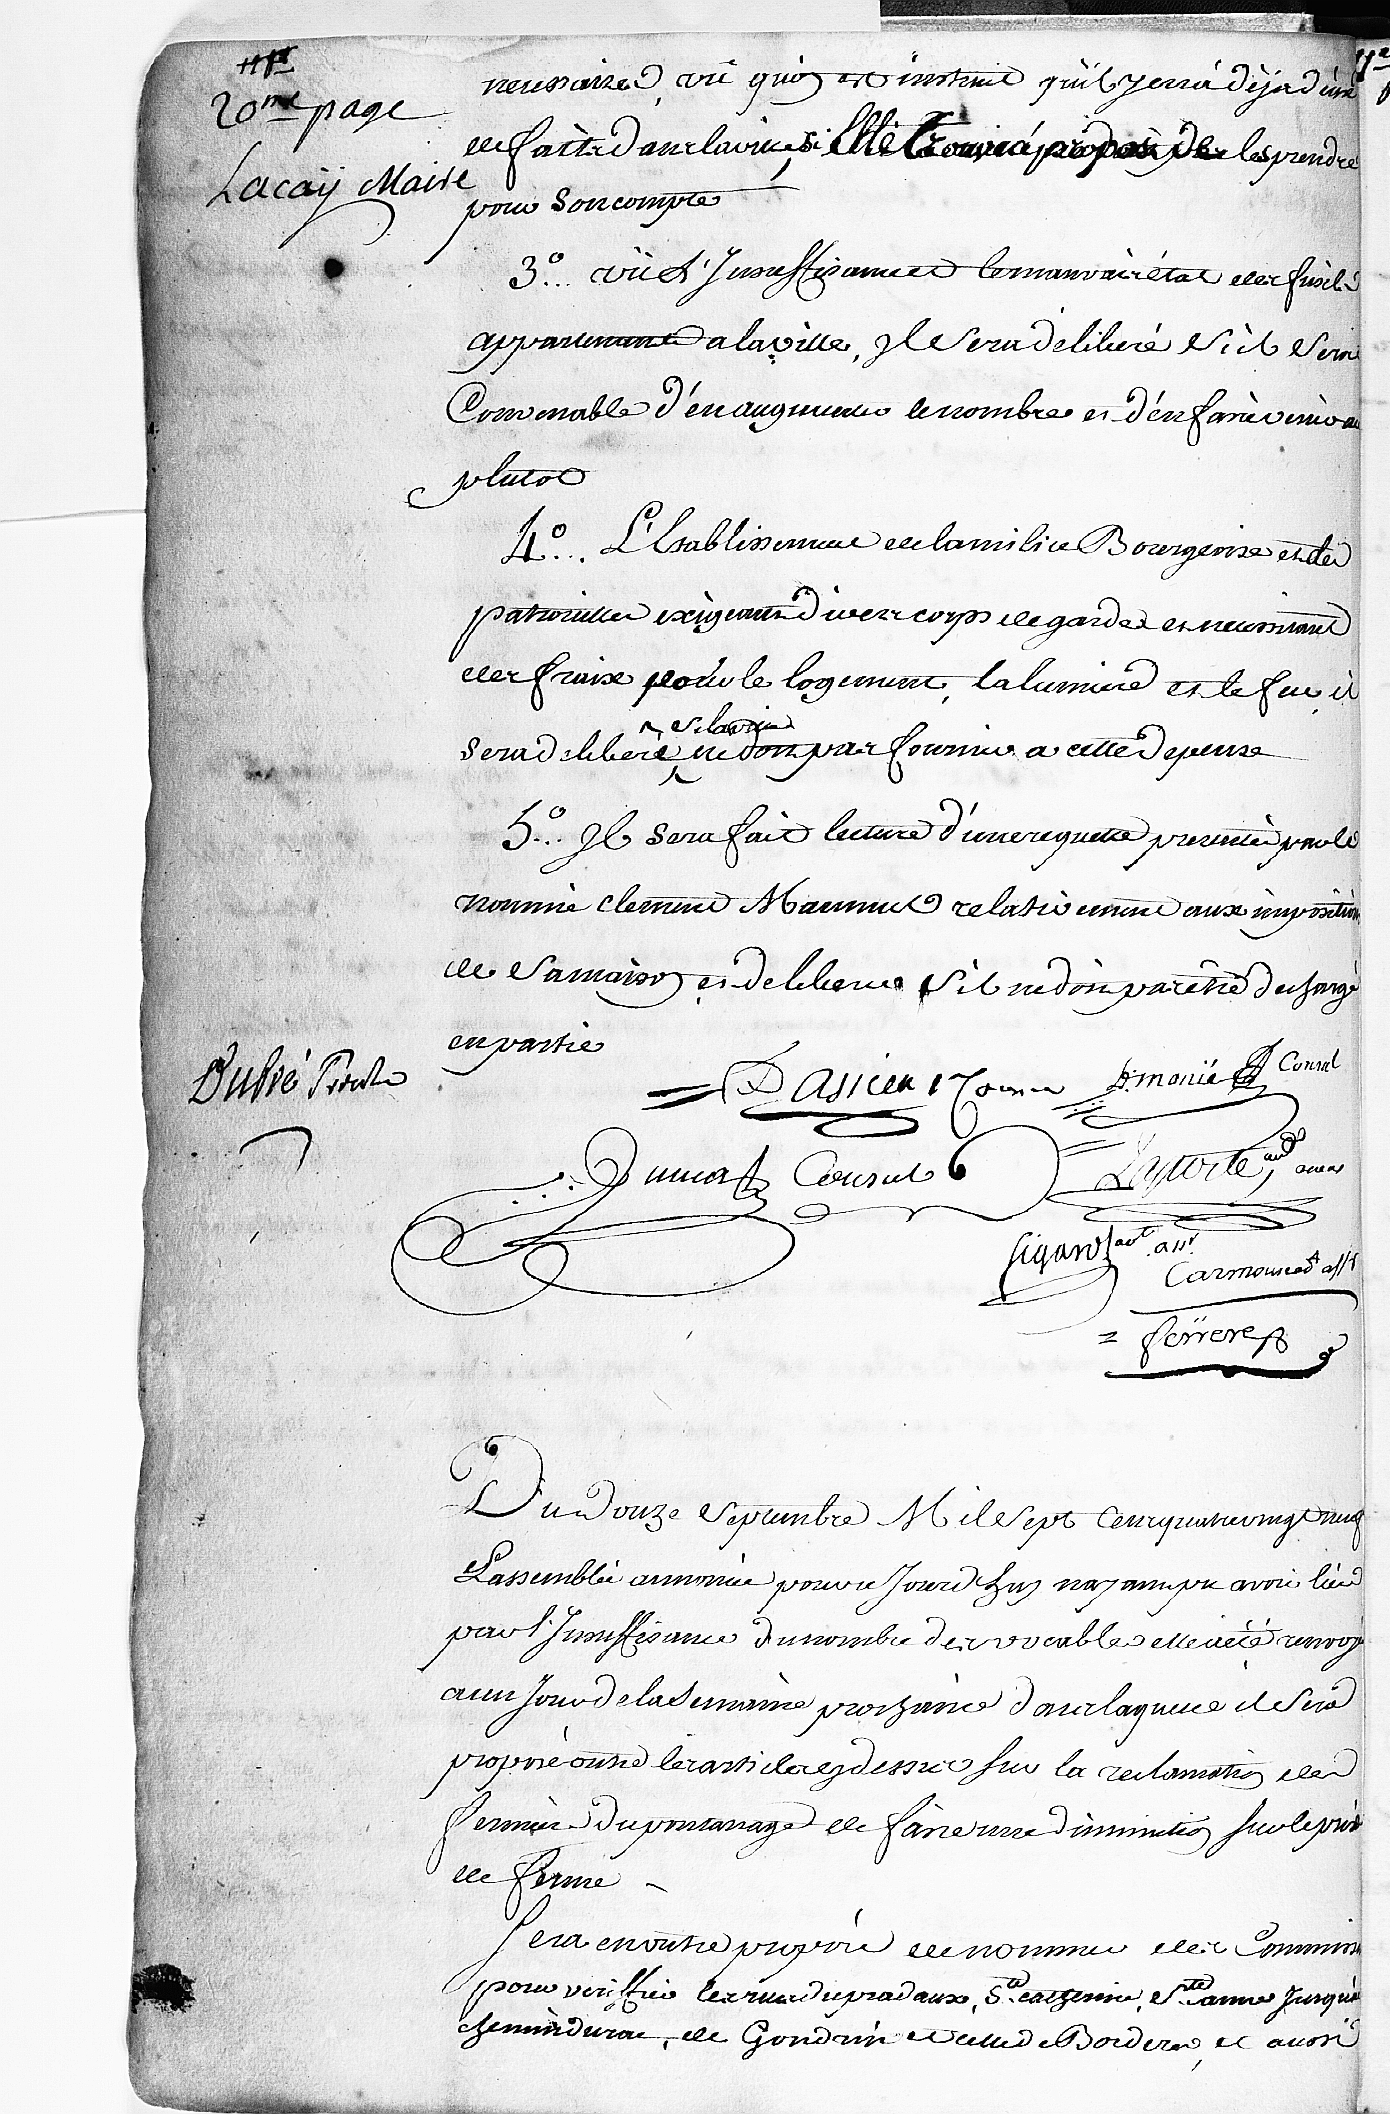 20me page
Lacaÿ Maire
necessaires, vû qu'on est instruit qu'il y en a deja d'une
de faite dans la ville, si Elle trouve a propos de les prendre
pour son compte
3o... vû l'Insuffisance et le mauvais état des fusils
appartenant a la ville, Il sera déliberé s'il sera
Convenable d'en augmenter le nombre et d'en faire venir au
plutot
4o... L'Etablissement de la milice Bourgeoise et des
patrouilles exigeant divers corps de garde et necessitant
des fraix pour le logement, la lumiere et le feu, il
sera deliberé si la ville ne doit pas fournir a cette depense
5o... Il sera fait lecture d'une requette presentée par le
nommé Clement Maumus relativement aux imposition
de sa maison et deliberer s'il ne doit pas être dechargé
en partie
Dubié
Daricau
Consul
Dumas Consul
Laporte
Ferrere
Du douze Septembre Mil Sept Cent quatre vingt neuf
L'assemblée annoncée pour ce Jourd'huy n'ayant pu avoir lieu
par l'Insuffisance du nombre des vocables elle a été renvoyé
a un Jour de la semaine prochaine dans laquelle il sera
proposé outre les articles cy dessus sur la reclamation des
fermiers du pontanage de faire une diminution sur le prix
de ferme
Sera en outre proposé de nommer des Commiss
pour veriffier les rues du pradaux, Ste catherine, Ste anne Jusqu'a
chemin durac, de Gondrin et celle de Bordere, et aussi